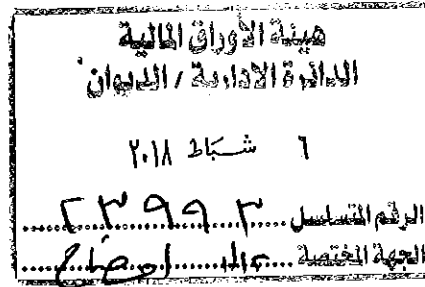 هيئة الأوراق المالية
الدائرة الادارية / الديوان
٦ شباط ٢٠١٨
الرقم المتسلسل ٢٣٩٩٣
الجهة المختصة افصاح